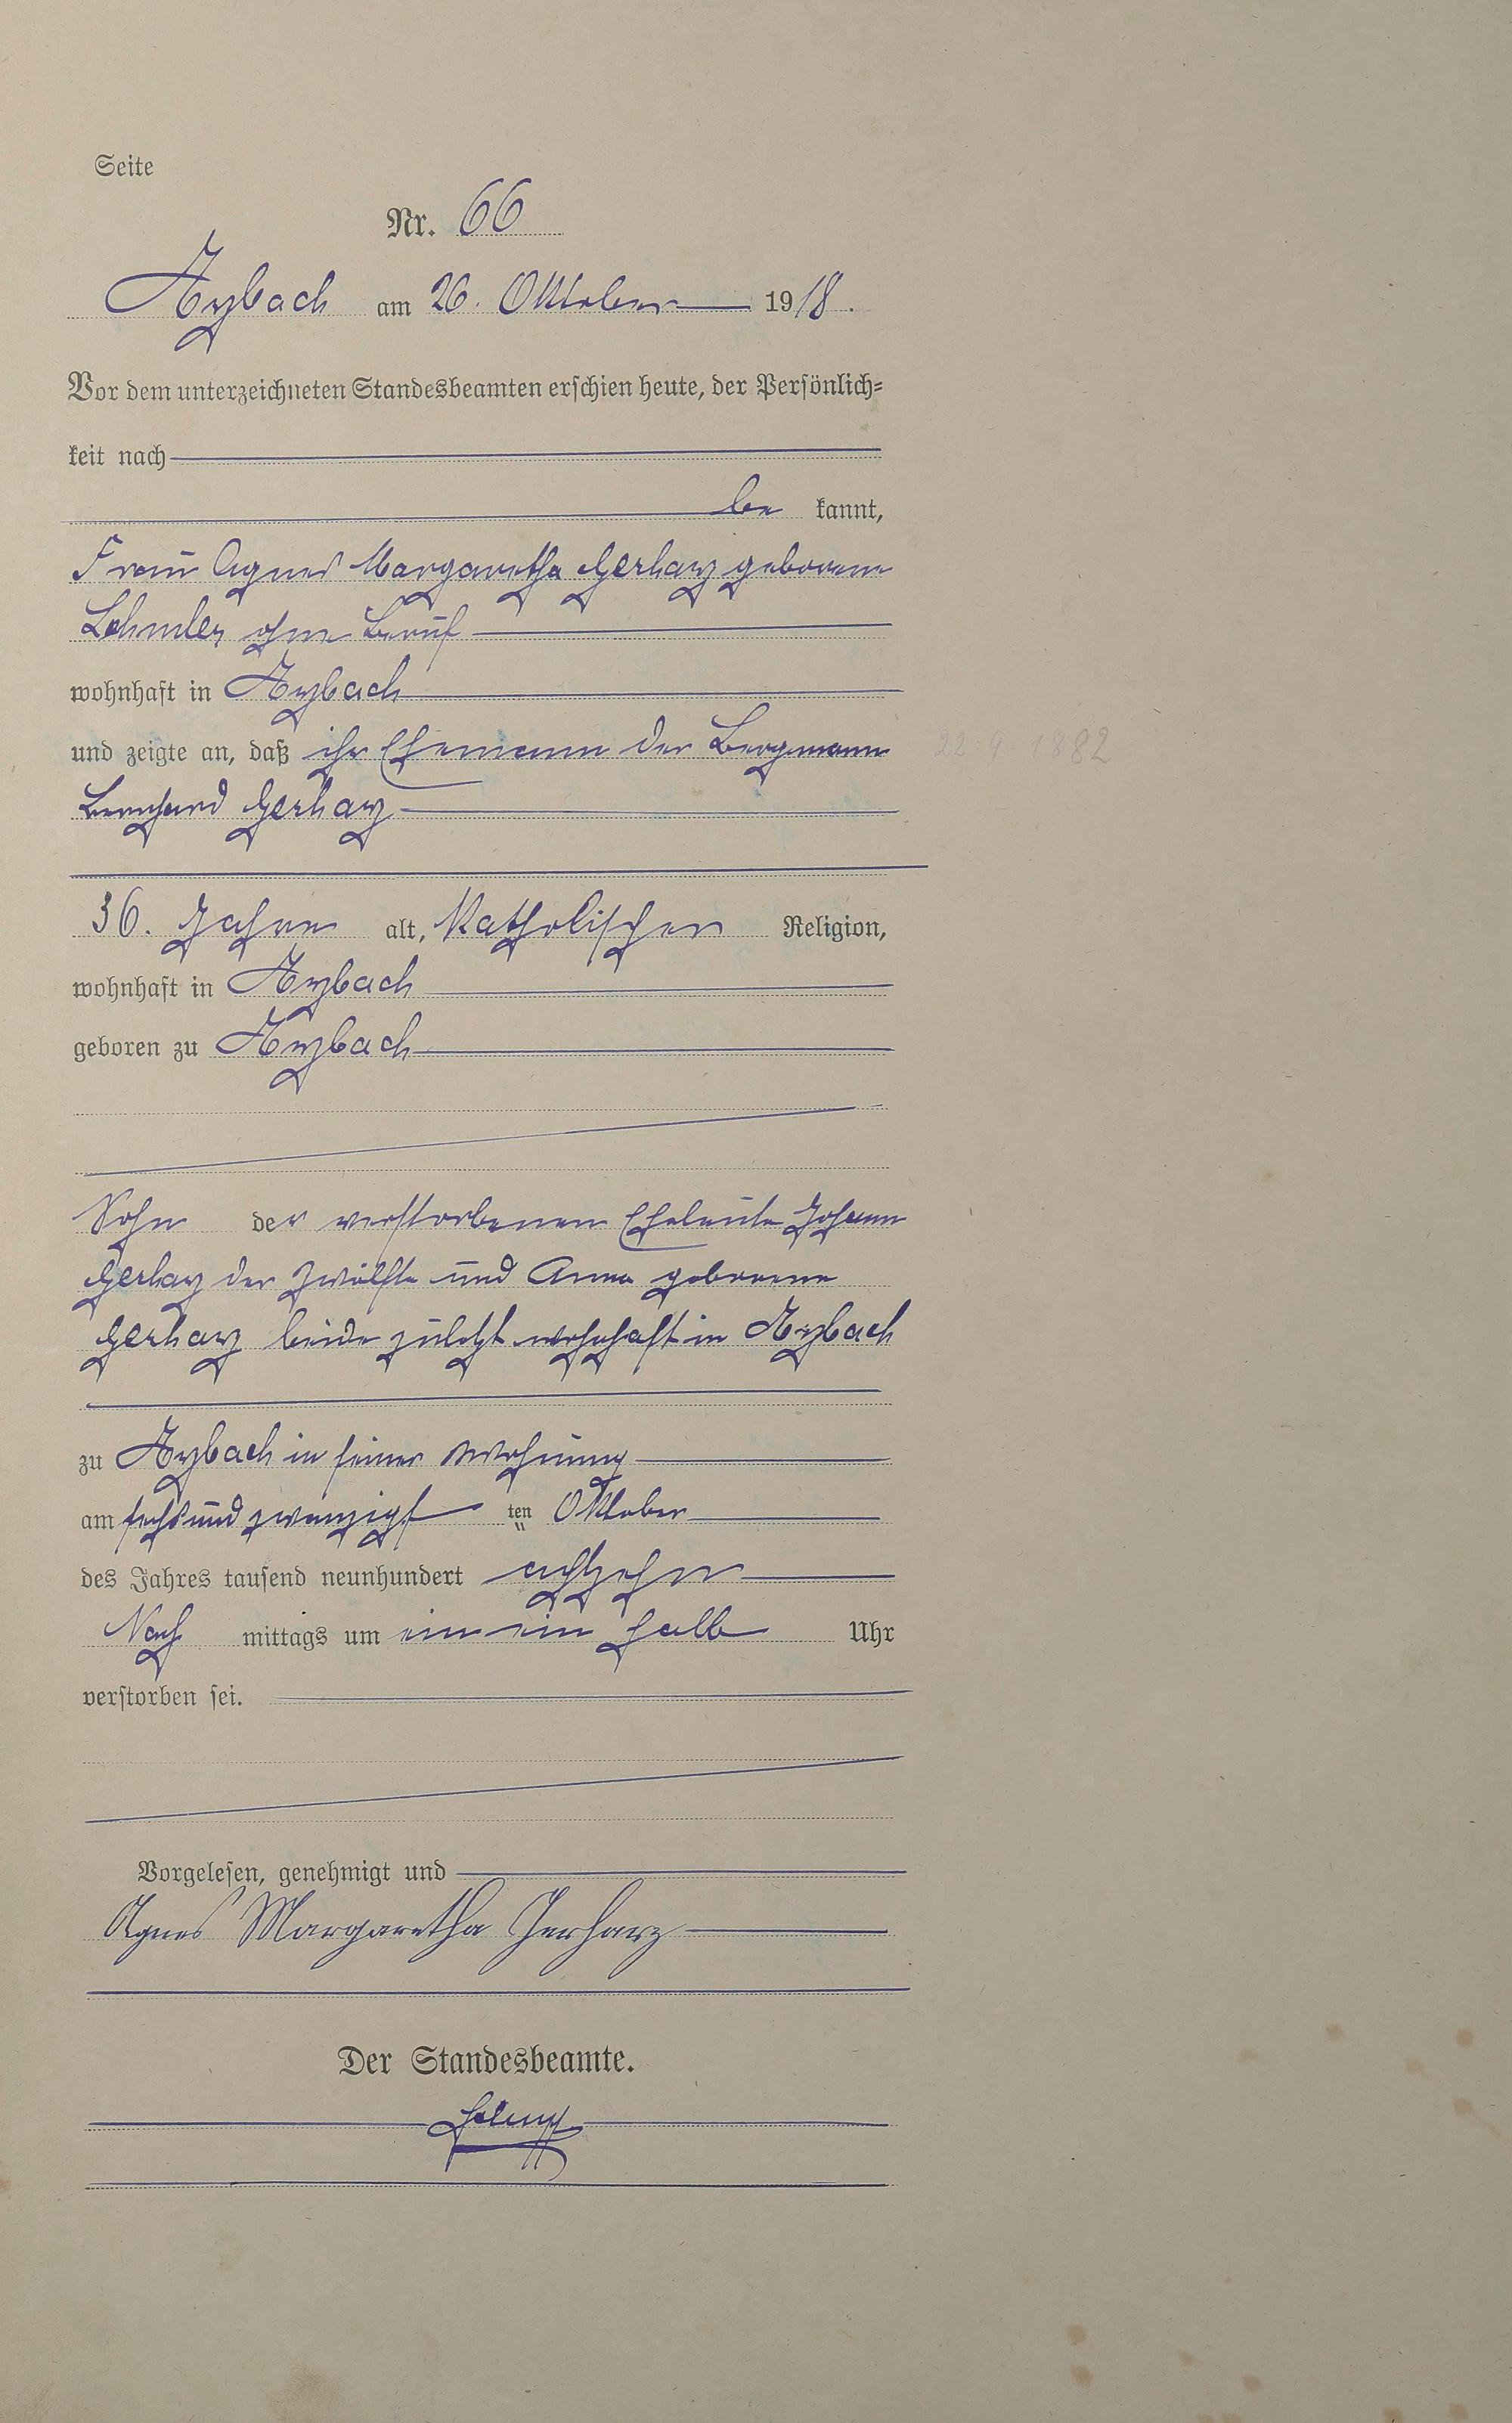 Seite
Nr. 66
Arzbach am 26. Oktober 1918.
Vor dem unterzeichneten Standesbeamten erschien heute, der Persönlich=
keit nach
be kannt,
Frau Agnes Margaretha Gerharz geborene
Lehmler ohne Beruf
wohnhaft in Arzbach
und zeigte an, daß ihr Ehemann der Bergmann 22 9 1882
Bernhard Gerharz
36. Jahre alt, Katholischer Religion,
wohnhaft in Arzbach
geboren zu Arzbach
Sohn der verstorbenen Eheleute Johann
Gerharz der Zwölfte und Anna geborene
Gerharz beide zuletzt wohnhaft in Arzbach
zu Arzbach in seiner Wohnung
am sechsundzwanzigsten Oktober
des Jahres tausend neunhundert achtzehn
Nach mittags um ein ein halb Uhr
verstorben sei.
Vorgelesen, genehmigt und
Agnes Margaretha Gerharz
Der Standesbeamte.